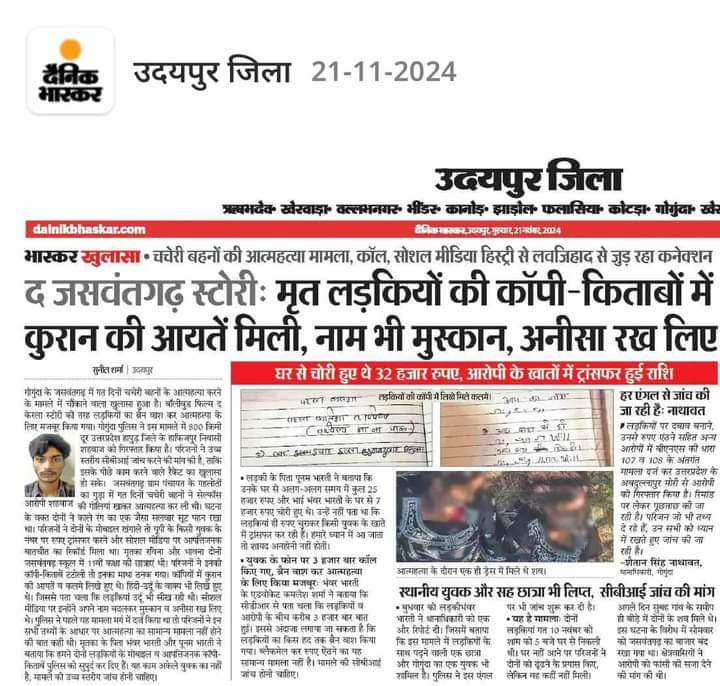 दैनिक
भास्कर
उदयपुर जिला 21-11-2024
उदयपुर जिला
ऋषभदेव• खेरवाड़ा• वल्लभनगर• भींडर• कानोड़• झाड़ोल• फलासिया• कोटड़ा• गोगुंदा•
dainikbhaskar.com
दैनिक भास्कर, उदयपुर, गुरुवार, 21 नवंबर, 2024
भास्कर खुलासा • चचेरी बहनों की आत्महत्या मामला, कॉल, सोशल मीडिया हिस्ट्री से लवजिहाद से जुड़ रहा कनेक्शन
द जसवंतगढ़ स्टोरी: मृत लड़कियों की कॉपी-किताबों में
कुरान की आयतें मिली, नाम भी मुस्कान, अनीसा रख लिए
सुनील शर्मा | उदयपुर
गोगुंदा के जसवंतगढ़ में गत दिनों चचेरी बहनों के आत्महत्या करने
के मामले में चौंकाने वाला खुलासा हुआ है। बॉलीवुड फिल्म द
केरला स्टोरी की तरह लड़कियों का ब्रेन वाश कर आत्महत्या के
लिए मजबूर किया गया। गोगुंदा पुलिस ने इस मामले में 800 किमी
दूर उत्तरप्रदेश हापुड़ जिले के हाफिजपुर निवासी
शाहबाज को गिरफ्तार किया है। परिजनों ने उच्च
स्तरीय सीबीआई जांच करने की मांग की है, ताकि
इसके पीछे काम करने वाले रैकेट का खुलासा
हो सके। जसवंतगढ़ ग्राम पंचायत के गहलोतों
का गुड़ा में गत दिनों चचेरी बहनों ने सेल्फॉस
आरोपी शाहबाज की गोलियां खाकर आत्महत्या कर ली थी। घटना
के वक्त दोनों ने काले रंग का एक जैसा सलवार सूट पहन रखा
था। परिजनों ने दोनों के मोबाइल खंगाले तो यूपी के किसी युवक के
नंबर पर रुपए ट्रांसफर करने और सोशल मीडिया पर आपत्तिजनक
बातचीत का रिकॉर्ड मिला था। मृतका रविना और भावना दोनों
जसवंतगढ़ स्कूल में 11वीं कक्षा की छात्राएं थीं। परिजनों ने इनकी
कॉपी-किताबें टटोली तो इनका माथा ठनक गया। कॉपियों में कुरान
की आयतें व कलमे लिखे हुए थे। हिंदी-उर्दू के वाक्य भी लिखे हुए
थे। जिससे पता चला कि लड़कियां उर्दू भी सीख रही थी। सोशल
मीडिया पर इन्होंने अपने नाम बदलकर मुस्कान व अनीसा रख लिए
थे। पुलिस ने पहले यह मामला मर्ग में दर्ज किया था तो परिजनों ने इन
सभी तथ्यों के आधार पर आत्महत्या का सामान्य मामला नहीं होने
की बात कही थी। मृतका के पिता भंवर भारती और पूनम भारती ने
बताया कि हमने दोनों लड़कियों के मोबाइल व आपत्तिजनक कॉपी-
किताबें पुलिस को सुपुर्द कर दिए हैं। यह काम अकेले युवक का नहीं
है, मामले की उच्च स्तरीय जांच होनी चाहिए।
घर से चोरी हुए थे 32 हजार रुपए, आरोपी के खातों में ट्रांसफर हुई राशि
लड़कियों की कॉपी में लिखे मिले कलमे।
• लड़की के पिता पूनम भारती ने बताया कि
उनके घर से अलग-अलग समय में कुल 25
हजार रुपए और भाई भंवर भारती के घर से 7
हजार रुपए चोरी हुए थे। उन्हें नहीं पता था कि
लड़कियां ही रुपए चुराकर किसी युवक के खाते
में ट्रांसफर कर रही हैं। हमारे ध्यान में आ जाता
तो शायद अनहोनी नहीं होती।
• युवक के फोन पर 3 हजार बार कॉल
किए गए, ब्रेन वाश कर आत्महत्या
के लिए किया मजबूर: भंवर भारती
के एडवोकेट कमलेश शर्मा ने बताया कि
सीडीआर से पता चला कि लड़कियों व
आरोपी के बीच करीब 3 हजार बार बात
हुई। इससे अंदाजा लगाया जा सकता है कि
लड़कियों का किस हद तक ब्रेन वाश किया
गया। ब्लैकमेल कर रुपए ऐंठने का यह
सामान्य मामला नहीं है। मामले की सीबीआई
जांच होनी चाहिए।
आत्महत्या के दौरान एक ही ड्रेस में मिले थे शव।
हर एंगल से जांच की
जा रही है: नाथावत
लड़कियों पर दबाव बनाने,
उनसे रुपए एंठने सहित अन्य
आरोपों में बीएनएस की धारा
107 व 108 के अंतर्गत
मामला दर्ज कर उत्तरप्रदेश के
अब्दुल्लापुर मोरी से आरोपी
को गिरफ्तार किया है। रिमांड
पर लेकर पूछताछ की जा
रही है। परिजन जो भी तथ्य
दे रहे हैं, उन सभी को ध्यान
में रखते हुए जांच की जा
रही है।
-शैतान सिंह नाथावत,
थानाधिकारी, गोगुंदा
स्थानीय युवक और सह छात्रा भी लिप्त, सीबीआई जांच की मांग
• बुधवार को लड़की भंवर
भारती ने थानाधिकारी को एक
और रिपोर्ट दी। जिसमें बताया
कि इस मामले में लड़कियों के
साथ पढ़ने वाली एक छात्रा
और गोगुंदा का एक युवक भी
शामिल है। पुलिस ने इस एंगल
पर भी जांच शुरू कर दी है।
• यह है मामला: दोनों
लड़कियां गत 10 नवंबर को
शाम को 5 बजे घर से निकली
थी। घर नहीं आने पर परिजनों ने
दोनों को ढूंढने के प्रयास किए,
लेकिन वह कहीं नहीं मिली।
अगले दिन सुबह गांव के समीप
ही बीड़े में दोनों के शव मिले थे।
इस घटना के विरोध में सोमवार
को जसवंतगढ़ का बाजार बंद
रखा गया था। क्षेत्रवासियों ने
आरोपी को फांसी की सजा देने
की मांग की थी।